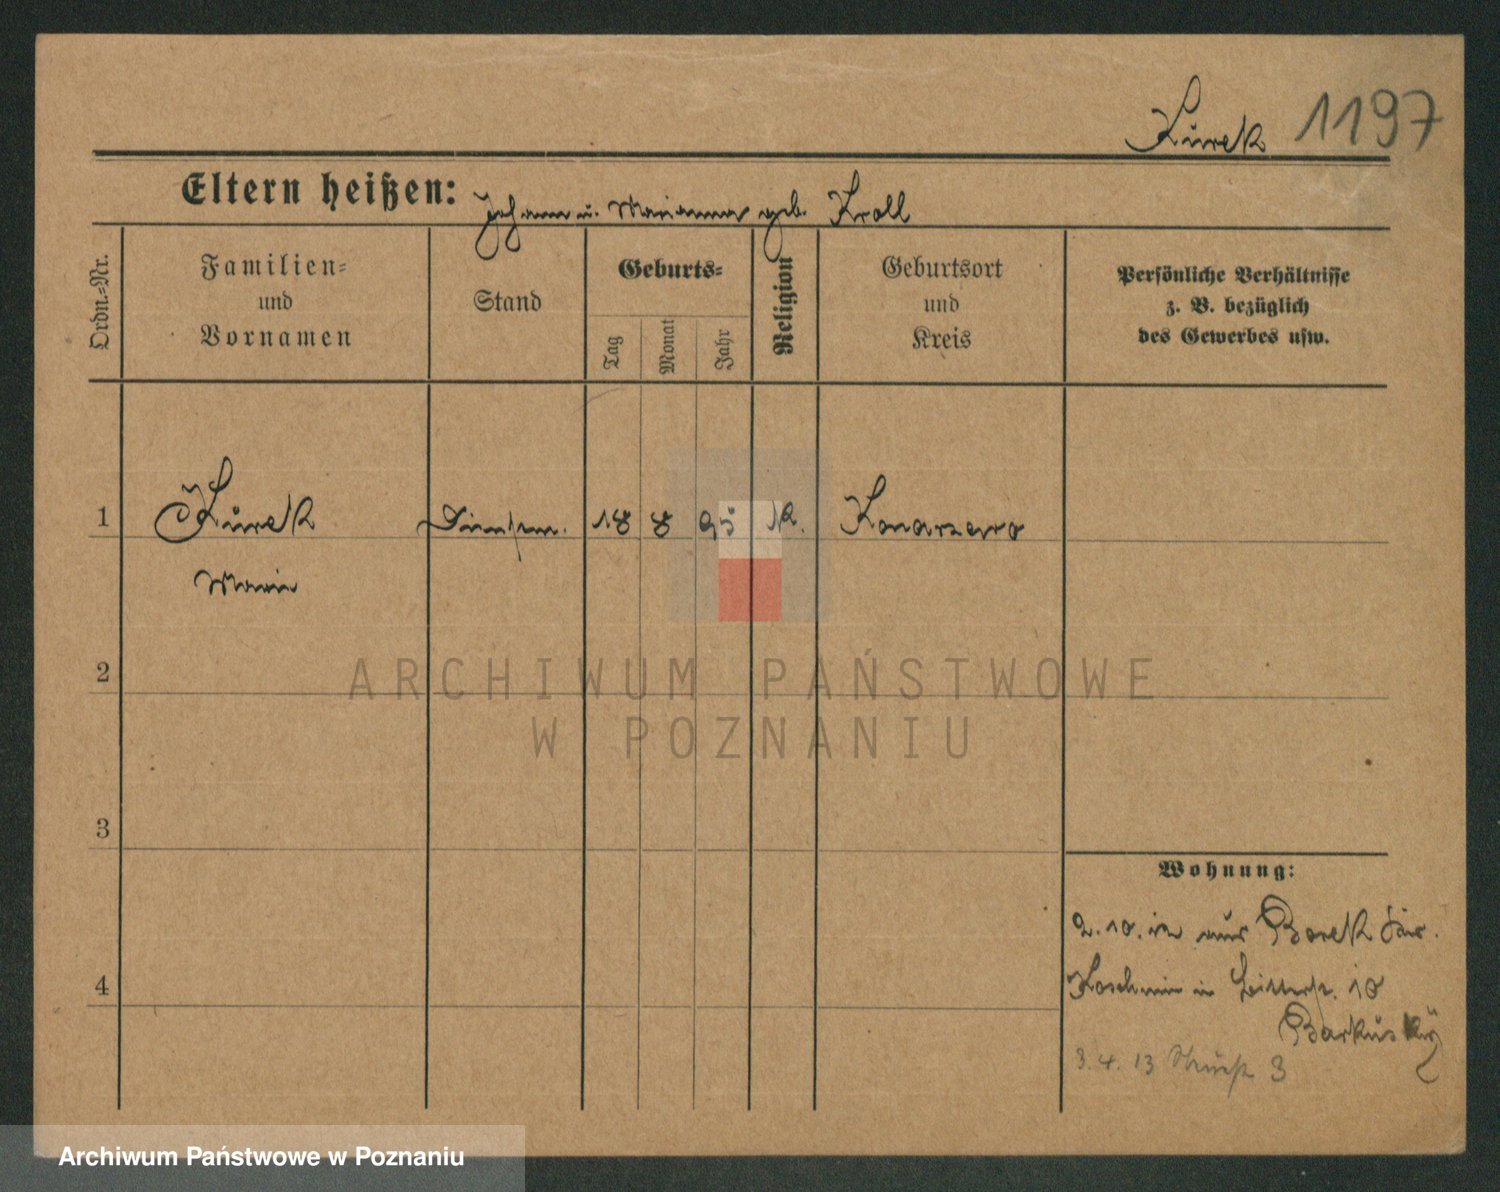 Kurek 1197
Eltern heißen: Johann u. Marianna geb. Kroll
Ordn.-Nr.
Familien-
und
Vornamen
Stand
Geburts-
Tag
Monat
Jahr
Religion
Geburtsort
und
Kreis
Persönliche Verhältnisse
z. B. bezüglich
des Gewerbes usw.
1 Kurek 18 8 95 k. Konarzewo
Marie
2
3
4
Wohnung:
2.10.12 aus Borek
Koschmin in Bitterstr. 18
3.4.13 3
ARCHIWUM PAŃSTWOWE
W POZNANIU
Archiwum Państwowe w Poznaniu